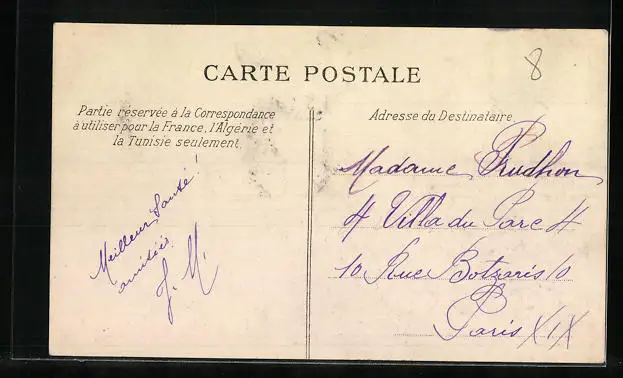 8
CARTE POSTALE
Partie réservée à la Correspondance
à utiliser pour la France, l'Algérie et
la Tunisie seulement.
Adresse du Destinataire.
Meilleure Santé!
amitiés.
J. M.
Madame Prudhon
4 Villa du Parc 4
10 Rue Botzaris 10
Paris XIX